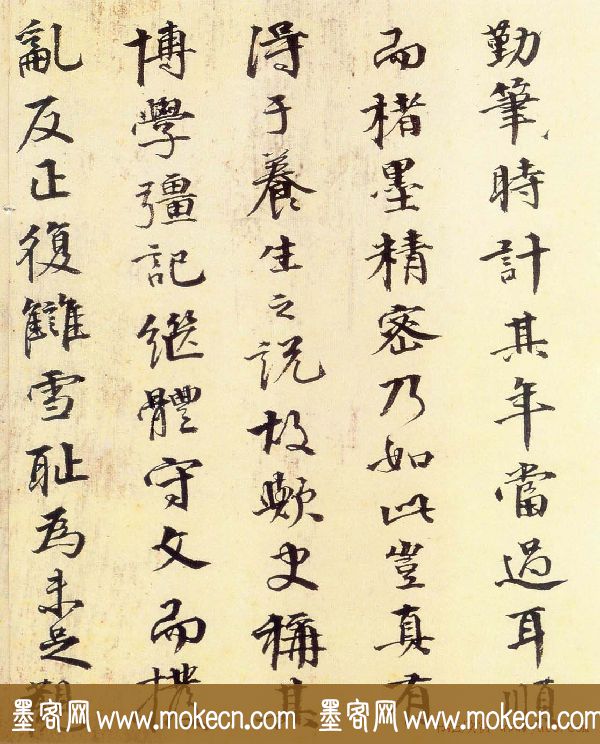 勤筆時計其年當過耳順
而楮墨精密乃如此豈真有
得于養生之説故歟史稱其
博學彊記繼體守文而撥
亂反正復讎雪耻為未足
墨客网 www.mokecn.com 墨客网 www.mokecn.com